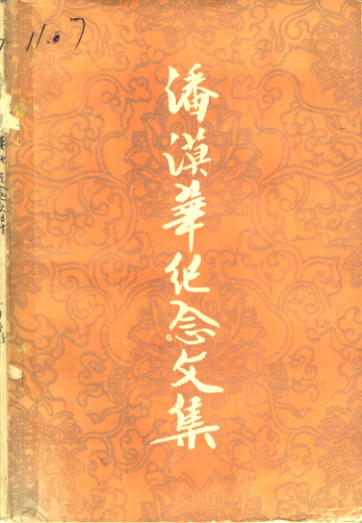 11.67
潘漠華纪念文集